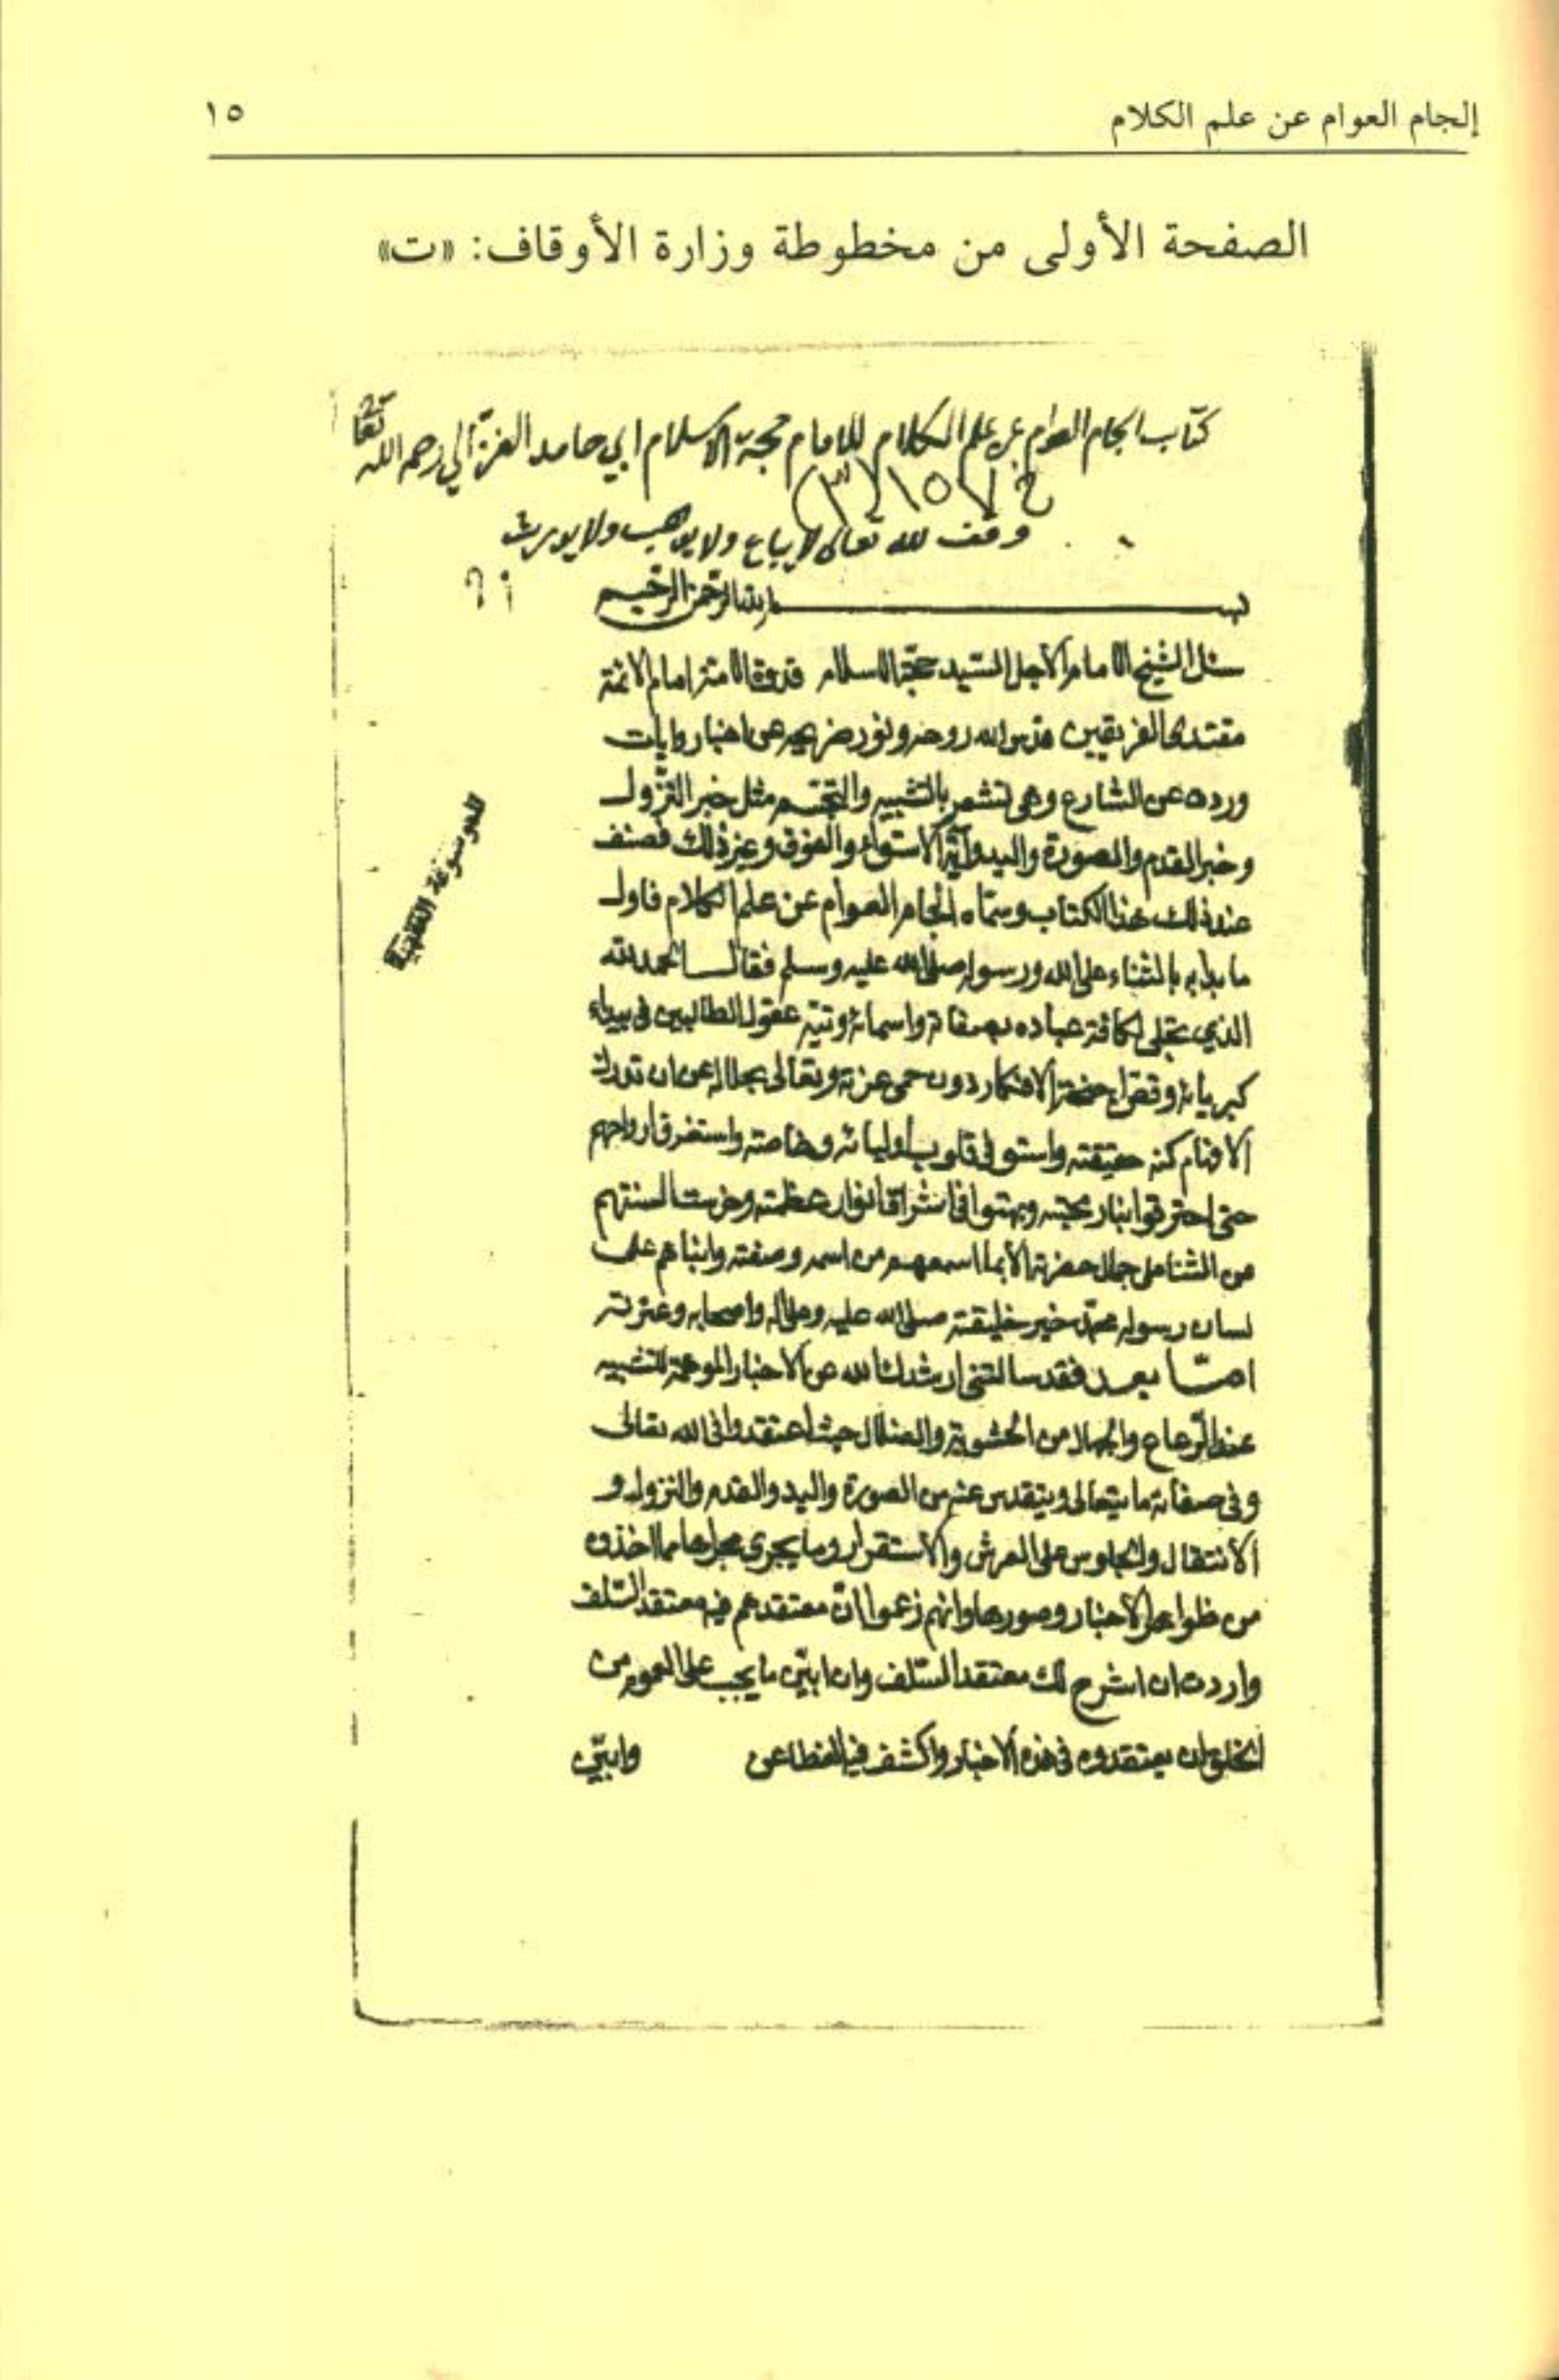 إلجام العوام عن علم الكلام
١٥
الصفحة الأولى من مخطوطة وزارة الأوقاف: «ت»
كتاب الجام العوام عن علم الكلام للامام حجة الاسلام ابي حامد الغزالي رحمه الله تعا
وقف لله تعالى لا يباع ولا يوهب ولا يورث
بسم الله الرحمن الرحيم
سئل الشيخ الامام الاجل السيد حجة الاسلام قدوة الامة امام الائمة
مقتدى الفريقين قدس الله روحه ونور ضريحه عن اخبار وايات
وردت عن الشارع وهى تشعر بالتشبيه والتجسم مثل خبر النزول
وخبر القدم والصورة واليد وآية الاستواء والفوق وغير ذلك فصنف
عند ذلك هذا الكتاب وسماه الجام العوام عن علم الكلام فاول
ما بدا به بالثناء على الله ورسوله صلى الله عليه وسلم فقال الحمد لله
الذي تجلى لكافة عباده بصفاته واسمائه وتيه عقول الطالبين فى بيداء
كبريائه وقص اجنحة الافكار دون حمى عزته وتعالى بجلاله عن ان تدرك
الافهام كنه حقيقته واستوفى قلوب اوليائه وخاصته واستغرق ارواحهم
حتى احترقوا بنار محبته وبهتوا فى اشراق انوار عظمته وخرست السنتهم
عن الثنا على جمال حضرته الا بما اسمعهم من اسمه وصفته وانباهم على
لسان رسوله محمد خير خليقته صلى الله عليه وعلى اله واصحابه وعترته
اما بعد فقد سالتنى ارشدك الله عن الاخبار الموهمة للتشبيه
عند الرعاع والجهلا من الحشوية والضلال حيث اعتقدوا فى الله تعالى
وفى صفاته ما يتعالى ويتقدس عنه من الصورة واليد والقدم والنزول و
الانتقال والجلوس على العرش والاستقرار وما يجرى مجراها مما اخذوه
من ظواهر الاخبار وصورها وانهم زعموا ان معتقدهم فيه معتقد السلف
واردت ان اشرح لك معتقد السلف وان ابين ما يجب على العموم من
الخلق ان يعتقدوه فى هذه الاخبار واكشف فيه الغطا عن وابين